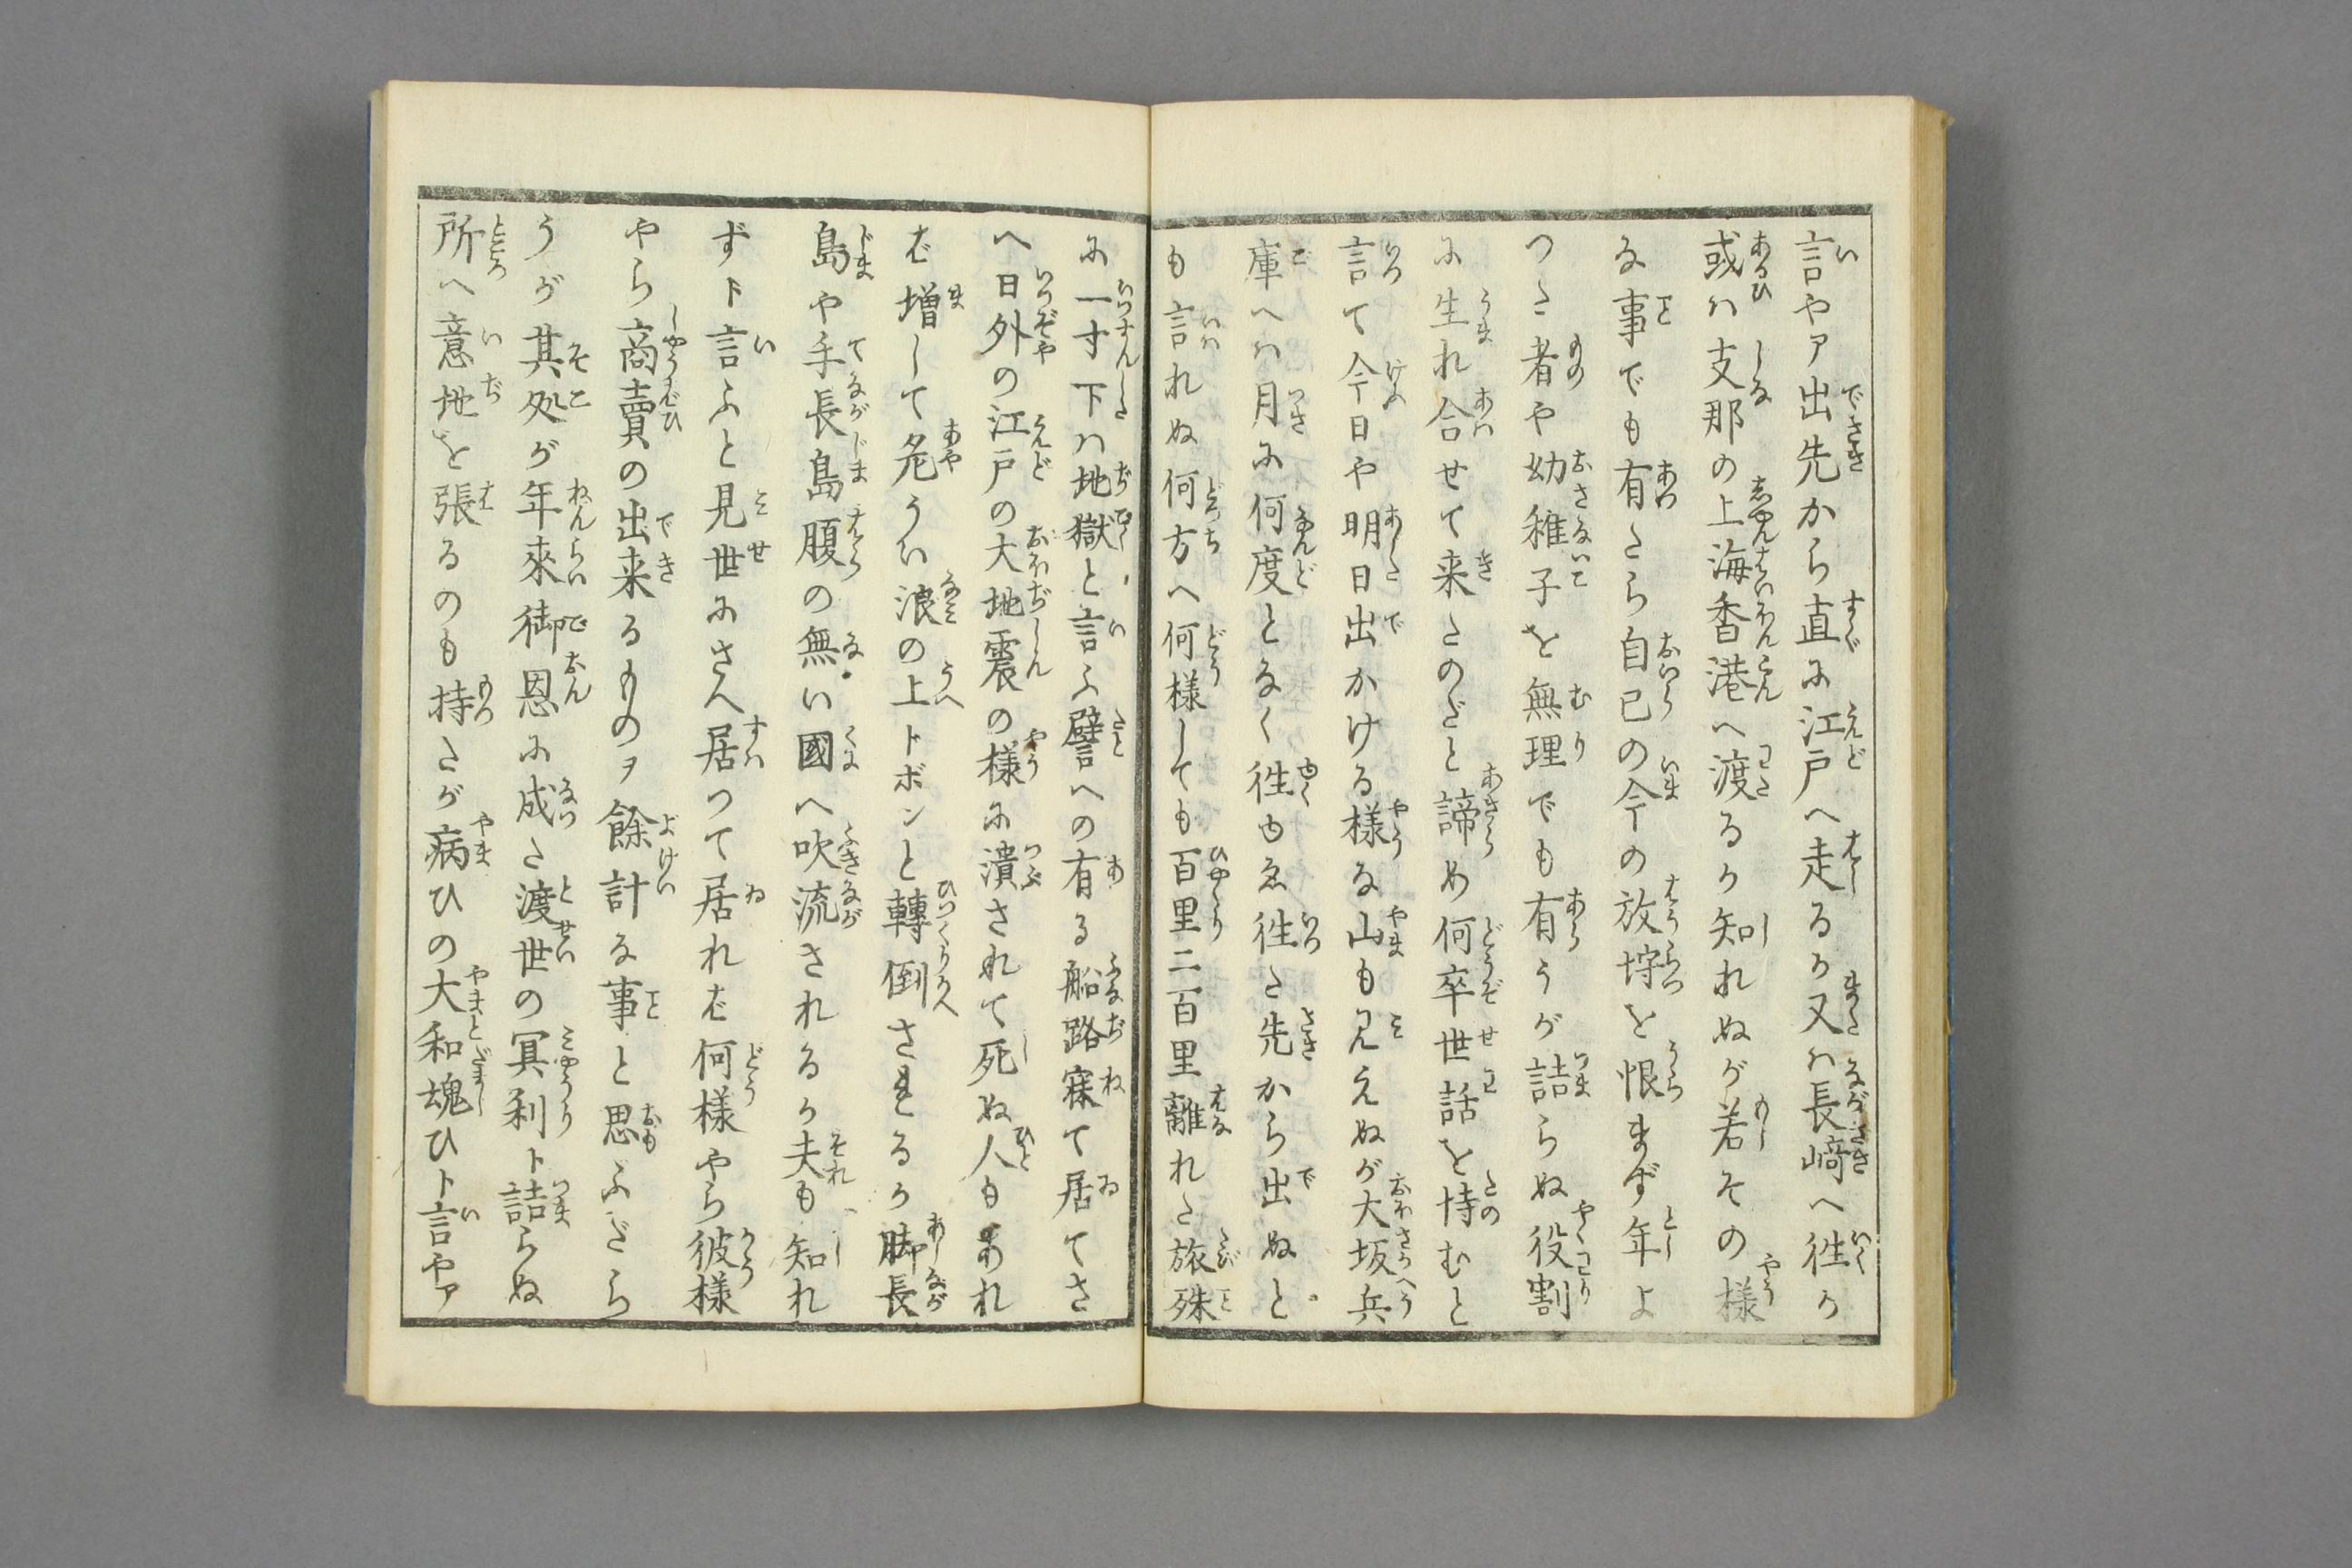 言やア出先から直に江戸へ走るか又ハ長﨑へ徃か
或ハ支那の上海香港へ渡るか知れぬが若その様
な事でも有たら自已の今の放埓を恨まず年よ
つた者や幼稚子を無理でも有うが詰らぬ役割
に生れ合せて来たのだと諦め何卒世話を恃むと
言て今日や明日出かける様な山も見えぬが大坂兵
庫へハ月に何度となく徃ゆゑ徃た先から出ぬと
も言れぬ何方へ何様しても百里二百里離れた旅殊
に一寸下ハ地獄と言ふ譬への有る船路寐て居てさ
へ日外の江戸の大地震の様に潰されて死ぬ人もあれ
ば増して危うい浪の上トボンと轉倒さるゝか脚長
島や手長島腹の無い國へ吹流されるか夫も知れ
ずト言ふと見世にさへ居つて居れば何様やら彼様
やら商賣の出来るものヲ餘計な事と思ふだら
うが其処が年來御恩に成た渡世の冥利ト詰らぬ
所へ意地を張るのも持たが病ひの大和魂ひト言やア